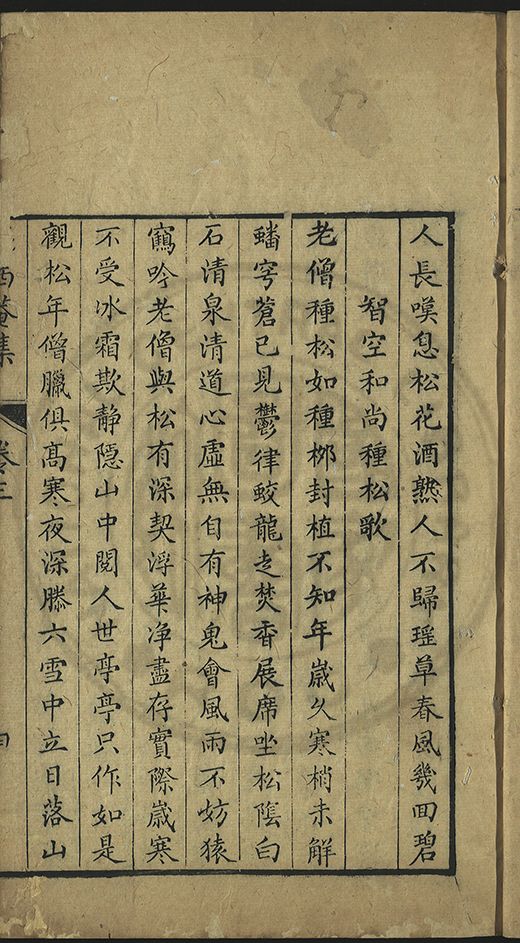 人長嘆息松花酒熟人不歸瑶草春風幾囬碧
智空和尚種松歌
老僧種松如種栁封植不知年歲久寒梢未解
蟠穹蒼已見鬱律蛟龍走焚香展席坐松陰白
石清泉清道心虛無自有神鬼會風雨不妨猿
鶴吟老僧與松有深契浮華净盡存實際歲寒
不受冰霜欺静隱山中閲人世亭亭只作如是
觀松年僧臘俱髙寒夜深滕六雪中立日落山
西菴集
卷三